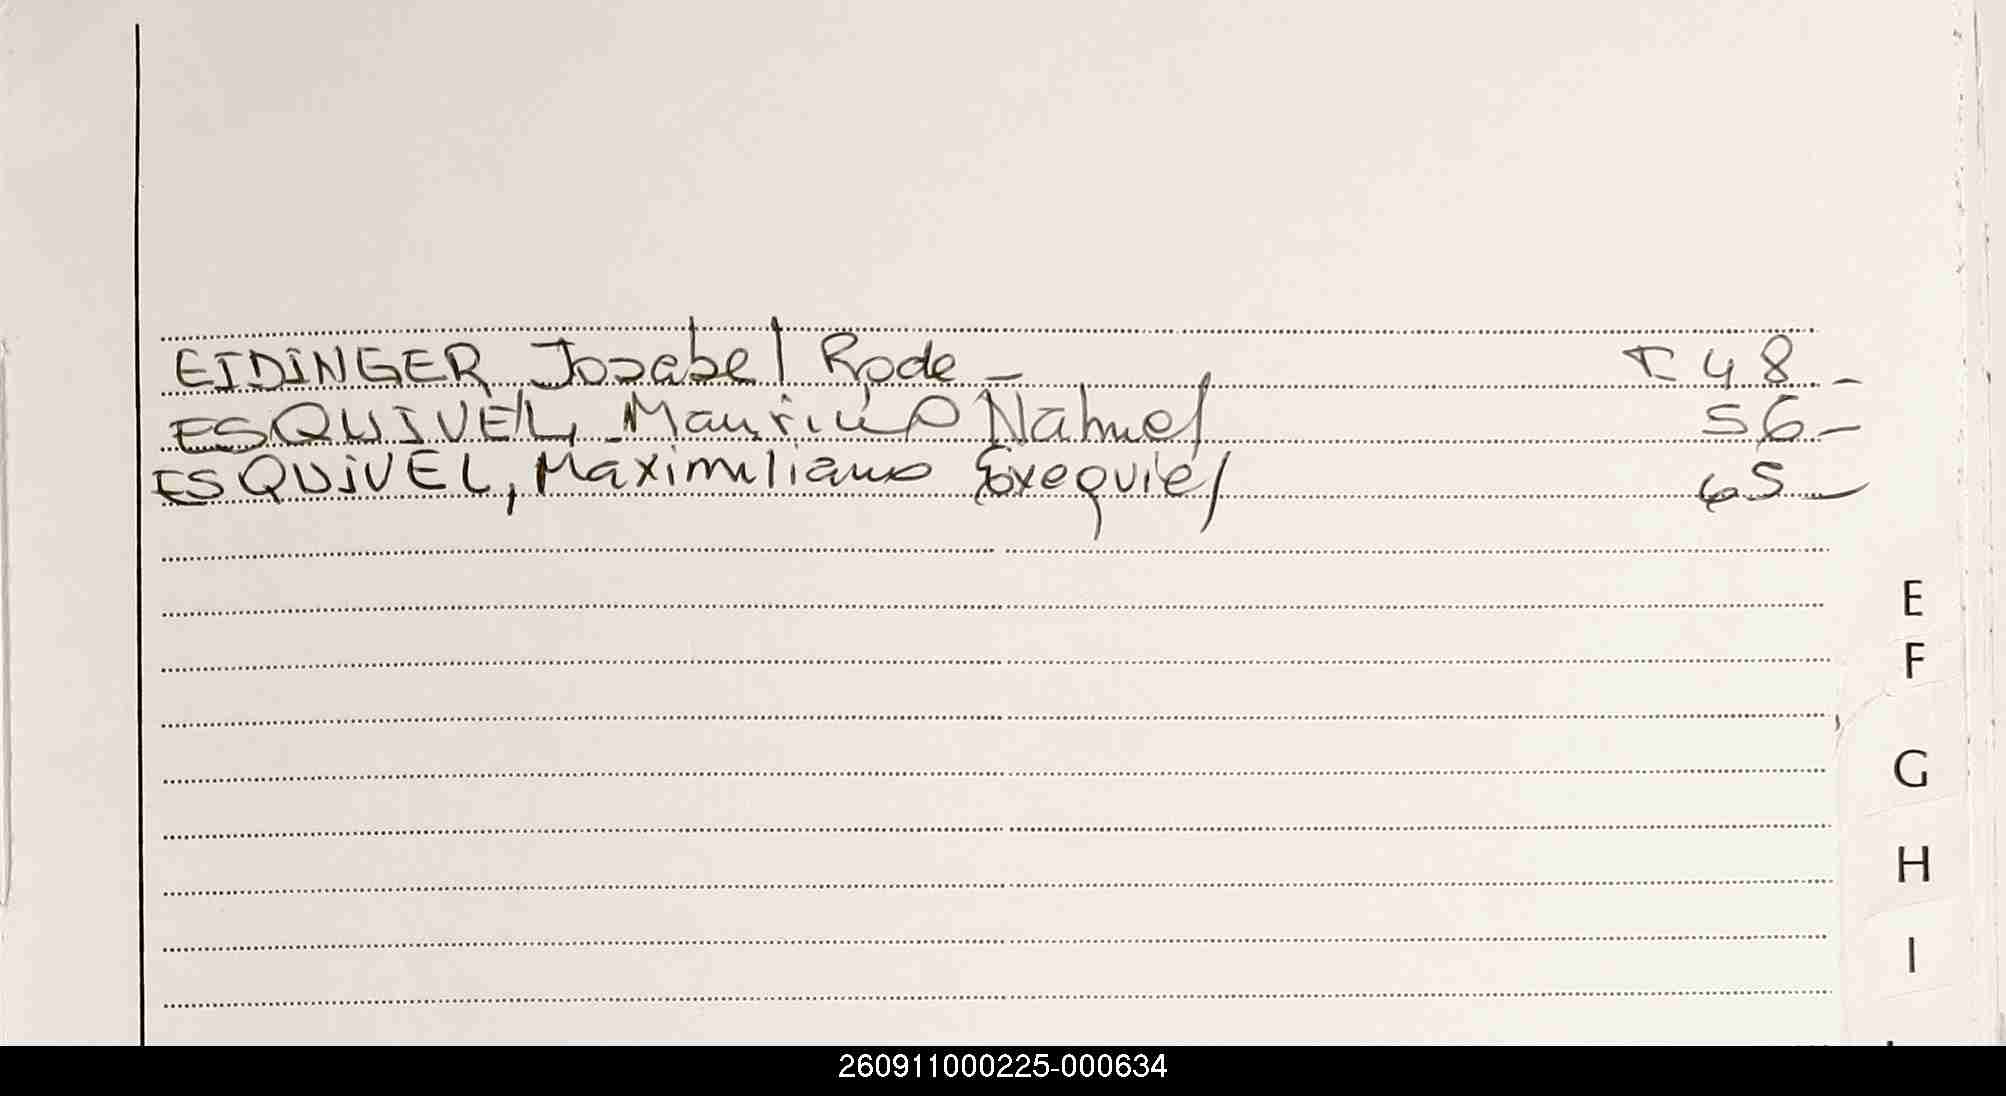 EIDINGER, Josabel Rode - T 48 -
ESQUIVEL, Mauricio Nahuel 56 -
ESQUIVEL, Maximiliano Exequiel 65 -
E
F
G
H
I
260911000225-000634